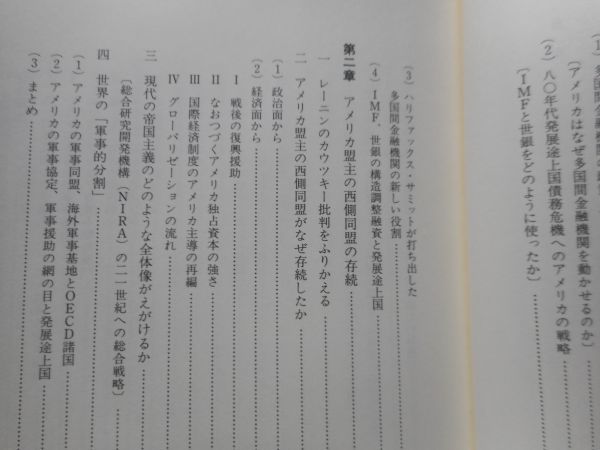 (1) 多国間金融機関の政
〔アメリカはなぜ多国間金融機関を動かせるのか〕
(2) 八〇年代発展途上国債務危機へのアメリカの戦略
〔IMFと世銀をどのように使ったか〕
(3) ハリファックス・サミットが打ち出した
多国間金融機関の新しい役割
(4) IMF、世銀の構造調整融資と発展途上国
第二章 アメリカ盟主の西側同盟の存続
一 レーニンのカウツキー批判をふりかえる
二 アメリカ盟主の西側同盟がなぜ存続したか
(1) 政治面から
(2) 経済面から
I 戦後の復興援助
II なおつづくアメリカ独占資本の強さ
III 国際経済制度のアメリカ主導の再編
IV グローバリゼーションの流れ
三 現代の帝国主義のどのような全体像がえがけるか
〔総合研究開発機構(NIRA)の二一世紀への総合戦略〕
四 世界の「軍事的分割」
(1) アメリカの軍事同盟、海外軍事基地とOECD諸国
(2) アメリカの軍事協定、軍事援助の網の目と発展途上国
(3) まとめ